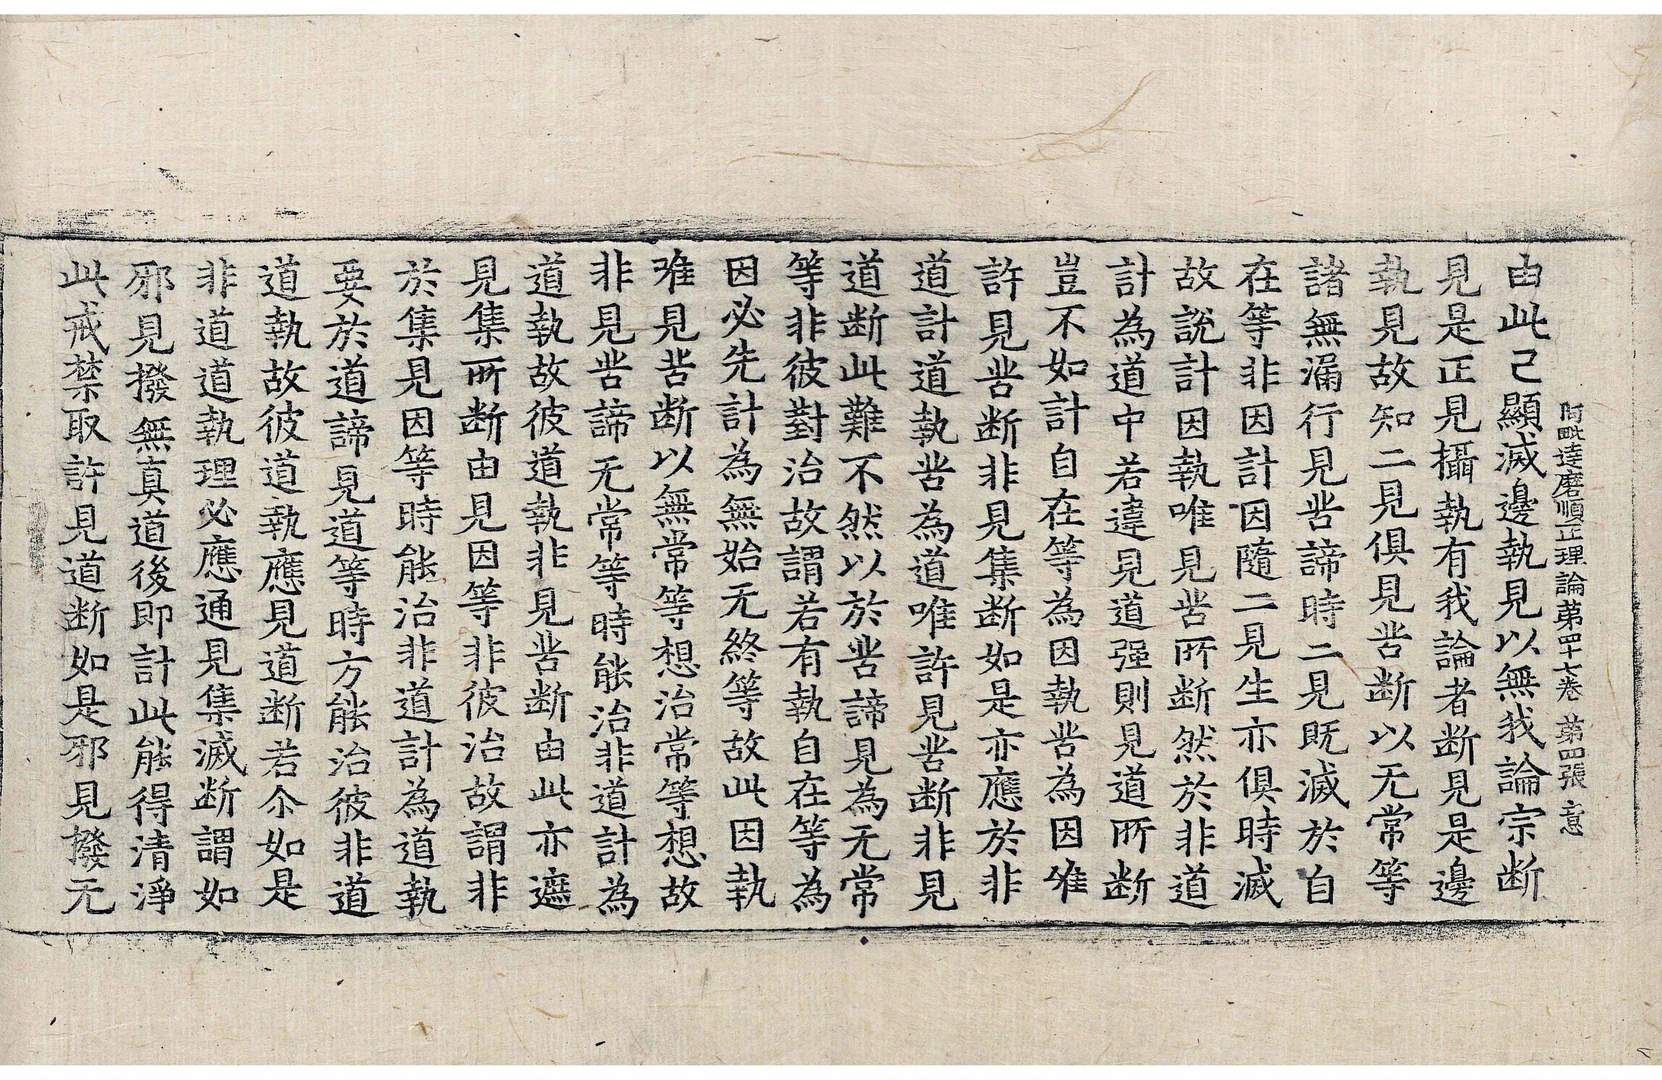 阿毗達磨順正理論第四十七卷 第四張 意
由此已顯滅邊執見以無我論宗断
見是正見攝執有我論者断見是邊
執見故知二見俱見苦断以无常等
諸無漏行見苦諦時二見既滅於自
在等非因計因隨二見生亦俱時滅
故說計因執唯見苦所断然於非道
計為道中若違見道强則見道所断
豈不如計自在等為因執苦為因唯
許見苦断非見集断如是亦應於非
道計道執苦為道唯許見苦断非見
道断此難不然以於苦諦見為无常
等非彼對治故謂若有執自在等為
因必先計為無始无終等故此因執
唯見苦断以無常等想治常等想故
非見苦諦无常等時能治非道計為
道執故彼道執非見苦断由此亦遮
見集所断由見因等非彼治故謂非
於集見因等時能治非道計為道執
要於道諦見道等時方能治彼非道
道執故彼道執應見道断若尒如是
非道道執理必應通見集滅断謂如
邪見撥無真道後即計此能得清淨
此戒禁取許見道断如是邪見撥无